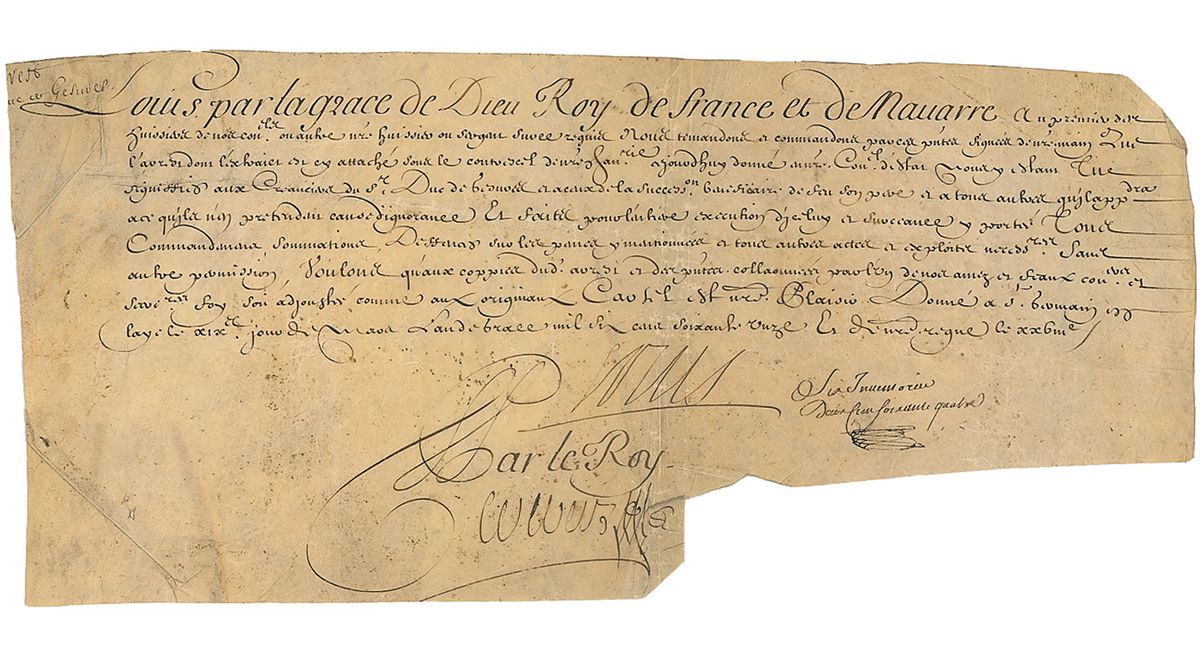 Louis par la grace de Dieu Roy de france et de Navarre Au premier des
huissiers de nos con.ls ou autre nre huissier ou sergent sur ce requis Nous te mandons et commandons par ces pntes signées de nre main Que
l'arrest dont l'extrait est cy attaché sous le contrescel de nre Chan.rie cejourdhuy donné en nre Con.l d'Estat Nous y estant Tu
signiffies aux Creanciers du Sr. Duc de Gesvres et a cause de la success.on beneficiaire de feu son pere et a tous autres qu'il app.dra
a ce qu'ils n'en pretendent cause dignorance Et faits pour l'entiere execution d'iceluy et Tous
Commandemens sommations, Deffenses sur les peines y mentionnées et tous autres actes et exploits necess.res sans
autre permission Voulons qu'aux coppies dud. arrest et des pntes collaonnées par l'un de nos amez et feaux con.ers et
secre.res foy soit adjoustée comme aux originaux Car tel est nre. Plaisir Donné a St. Germain en
laye le xix.e jour de Mars L'an de grace mil six cens soixante unze Et de nre regne le xxviii
Louis
Par le Roy
Inventorié
Deux Cens soixante quatre